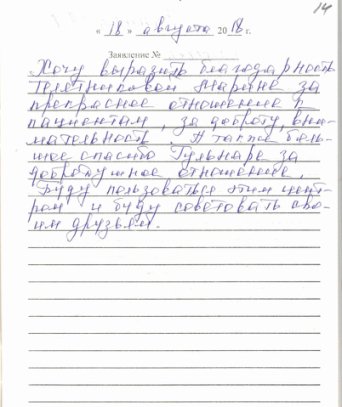 14
« 18 » августа 2018 г.
Заявление №
Хочу выразить благодарность
Телетниковой Марине за
прекрасное отношение к
пациентам, за доброту, вни-
мательность. А также боль-
шое спасибо Гульнаре за
добродушное отношение.
Буду пользоваться этим цент-
ром и буду советовать сво-
им друзьям.